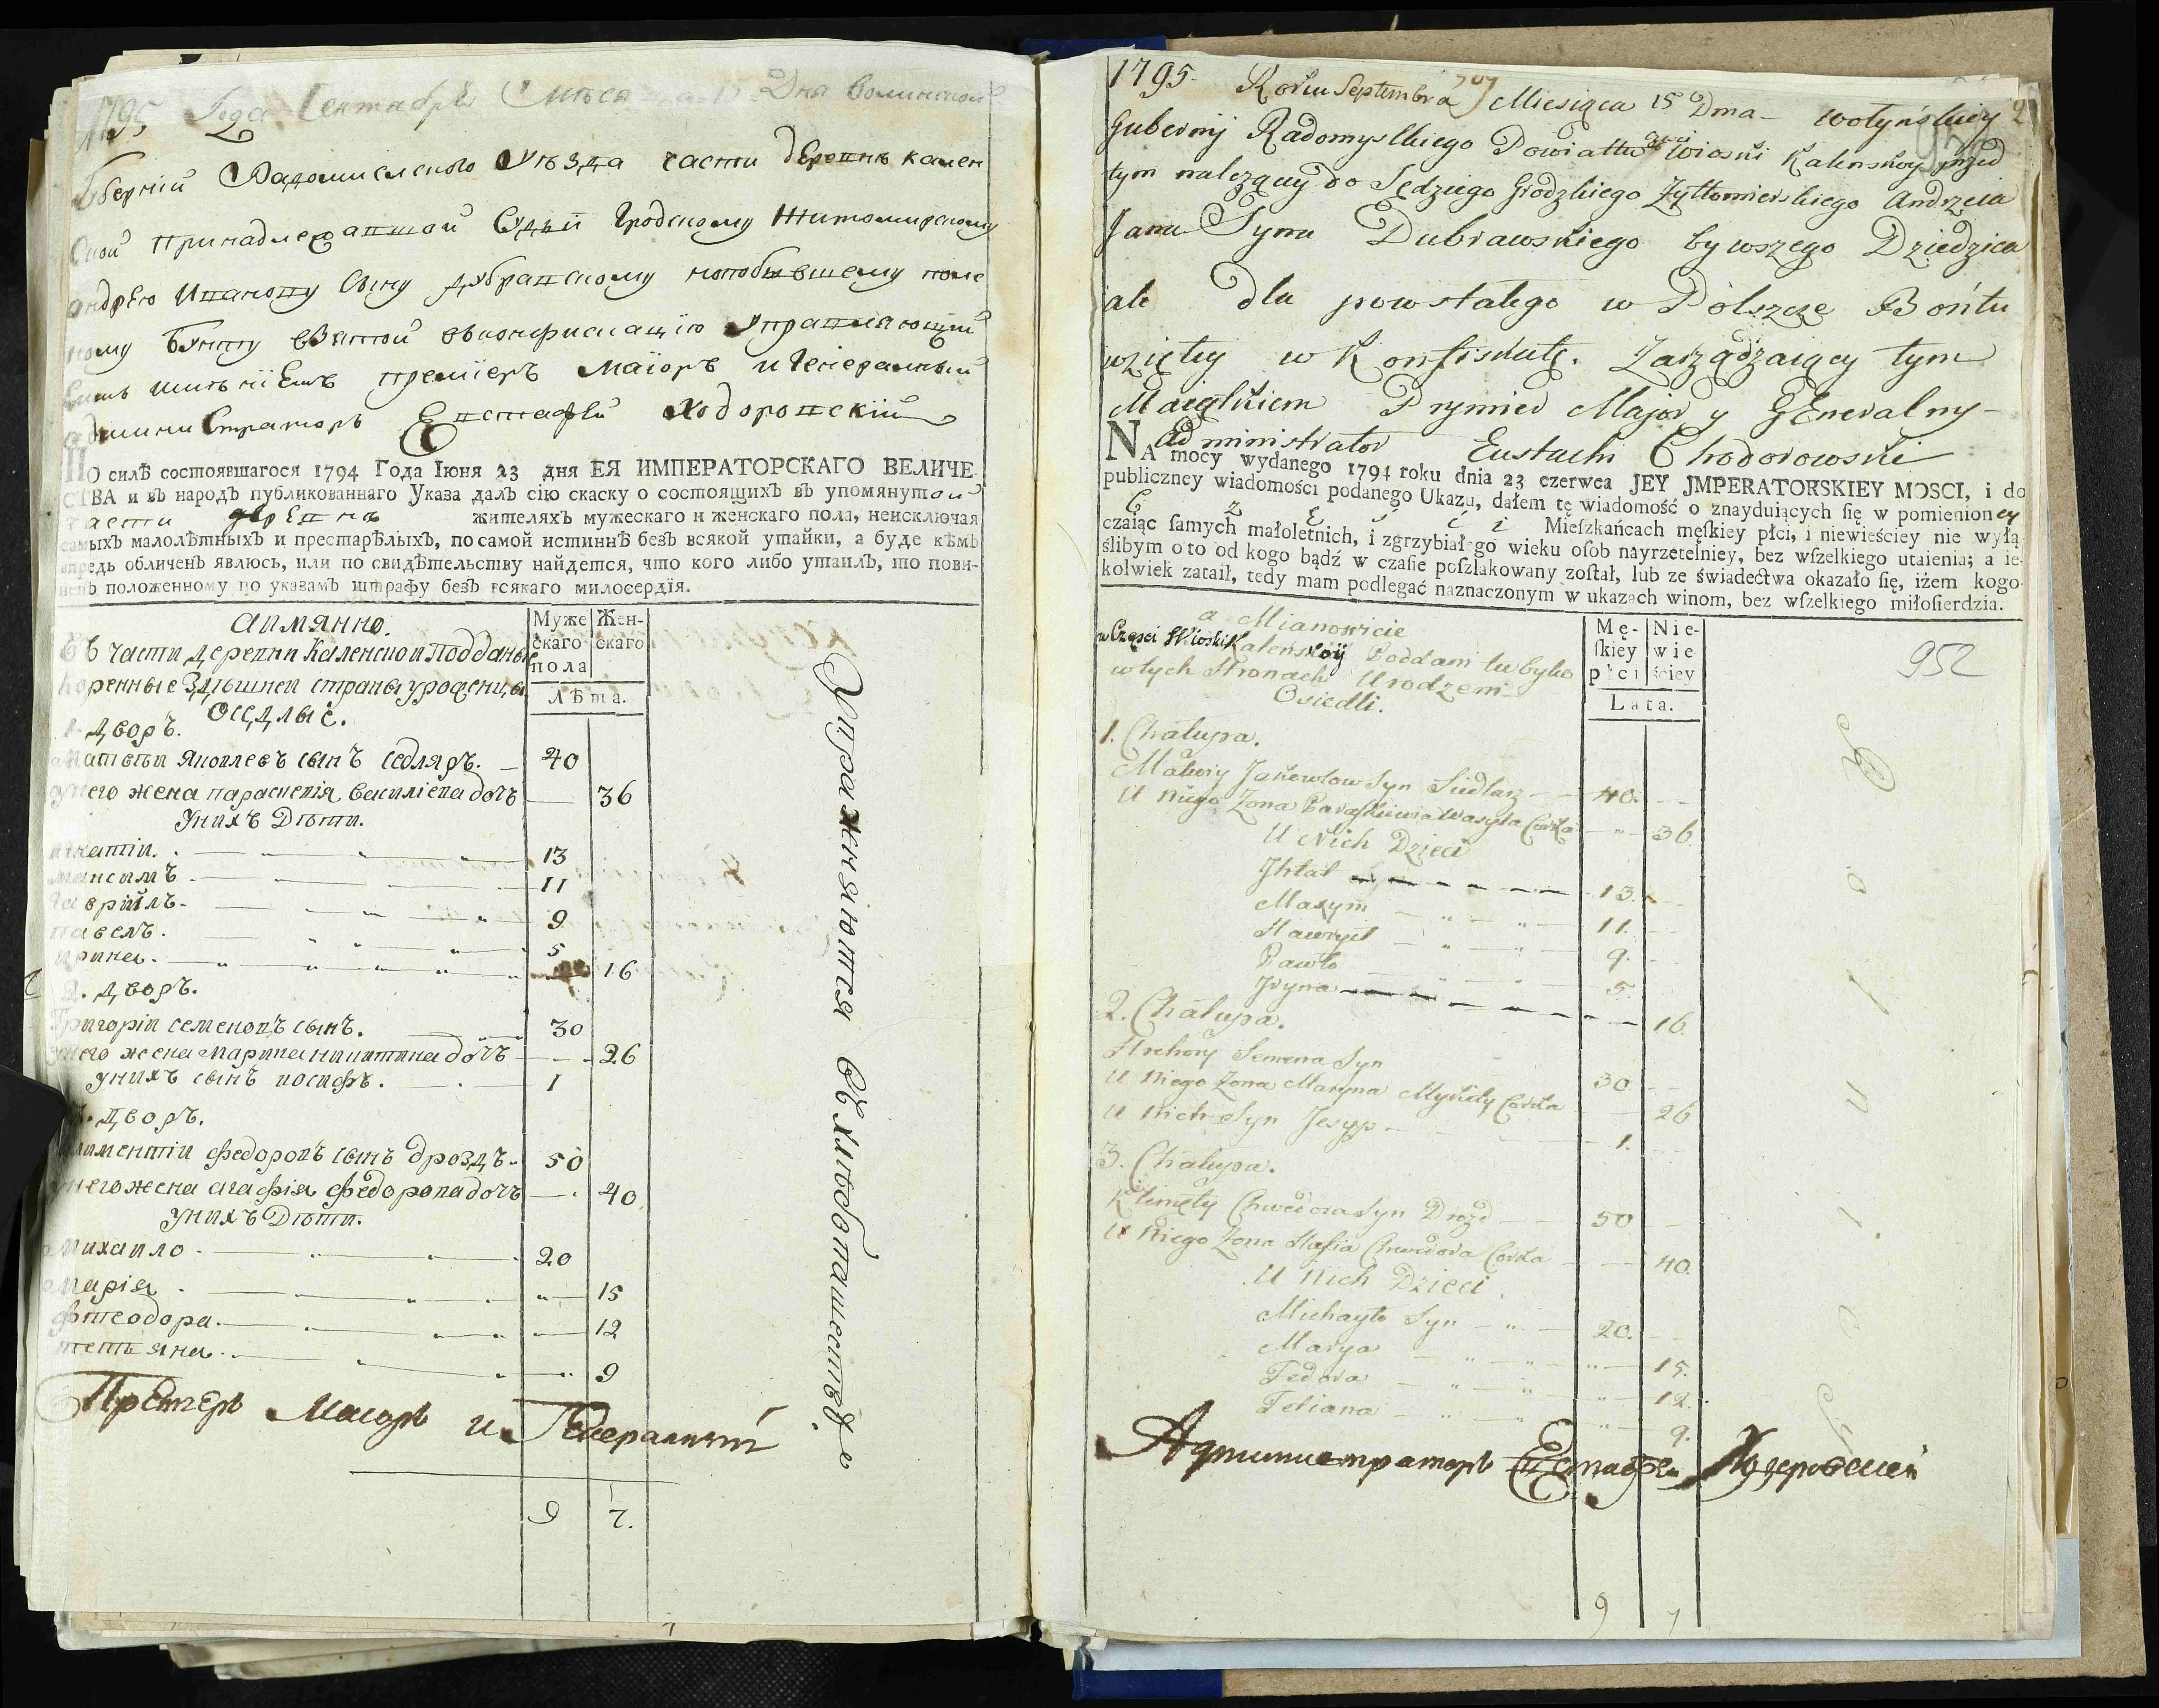 1795 Года Сентября Мѣсяца 15 Дня Волинской
Губерній Радомисльского Уѣзда части деревнѣ кален
ской принадлежавшой Судьи Гродскому Житомирскому
андрею Иванову Сыну Дубравскому
Бунту взятой вконфискацію Управляющій
имѣніемъ премиеръ маіоръ и Генеральный
администраторъ Евстафій Ходоровскій
ПО силѣ состоявшагося 1794 Года Іюня 23 дня ЕЯ ИМПЕРАТОРСКАГО ВЕЛИЧЕ-
СТВА и въ народъ публикованнаго Указа далъ сію скаску о состоящихъ въ упомянутой
части деревнѣ жителяхъ мужескаго и женскаго пола, неисключая
самыхъ малолѣтныхъ и престарѣлыхъ, по самой истиннѣ безъ всякой утайки, а буде кѣмъ
впредь обличенъ явлюсь, или по свидѣтельству найдется, что кого либо утаилъ, то пови-
ненъ положенному по указамъ штрафу безъ всякаго милосердія.
Аимянно.
Муже
скаго
пола
Жен-
скаго
Лѣта.
Въ части деревни Каленской Подданые
коренные Здѣшней страны уроженцы
Осѣдлые.
1 дворъ.
матвѣй Яковлевъ сынъ седляръ. 40
унего жена параскевія василіева дочь 36
Унихъ Дѣти.
игнатій. 13
максимъ 11
гаврійлъ. 9
павелъ. 5
ирина. 16
2. дворъ.
Григорій семеновъ сынъ. 30
унего жена Марина никитина дочь 26
унихъ сынъ иосифъ. 1
3. дворъ.
климентій федоровъ сынъ дроздъ 50
унего жена агафія федорова дочь 40
Унихъ Дѣти.
Михайло 20
Марія 15
фтеодора. 12
тетьяна. 9
Премиеръ Маиоръ и Генералный
9 7.
Упражняются Въ хлѣбопашествѣ
1795 Roku Septembra Miesiąca 15 Dnia wołyńskiey
Gubernij Radomyslkiego Powiattu części Wioski Kalenskoy przed
tym należący do Sędziego Grodzkiego Żyttomierskiego Andrzeia
Jana Syna Dubrawskiego bywszego Dziedzica
ale dla powstałego w Polszcze Bońtu
wziętey w Konfiskatę. Zarządzaiący tym
Maiątkiem Prymier Major y GEneralny
Administrator Eustachi Chodorowski
NA mocy wydanego 1794 roku dnia 23 czerwca JEY JMPERATORSKIEY MOSCI, i do
publiczney wiadomości podanego Ukazu, dałem tę wiadomość o znayduiących ſię w pomienioney
Części Mieſzkańcach męſkiey płci, i niewieściey nie wyłą
czaiąc ſamych małoletnich, i zgrzybiałego wieku oſob nayrzetelniey, bez wſzelkiego utaienia; a ie-
ślibym o to od kogo bądź w czaſie poſzlakowany zoſtał, lub ze świadectwa okazało ſię, iżem kogo-
kolwiek zataił, tedy mam podlegać naznaczonym w ukazach winom, bez wſzelkiego miłoſierdzia.
a Mianowicie
Mę-
ſkiey
płci
Nie-
wie
ściey
Lata.
952
w Części Wioski Kalenskoy Poddani
w tych Stronach Urodzeni
Osiedli.
1. Chałupa.
Matwiy Jakowlow Syn Siedlarz 40.
U Niego Zona Paraskiewia Wasyla Corka 36.
U Nich Dzieci
Jhnat 13.
Maxym 11.
Hawryił 9.
Pawło 5.
Jryna 16.
2. Chałupa.
Hrehory Semena Syn 30.
U Niego Zona Maryna Mykity Corka 26
U Nich Syn Jesyp 1.
3. Chałupa.
Klimęty Chwedora Syn Drozd 50
U Niego Zona Hafia Chwedora Corka 40.
U Nich Dzieci.
Michayło Syn 20.
Marya 15.
Fedora 12.
Tetiana 9.
Администраторъ Евстафей Ходоровскій
9 7